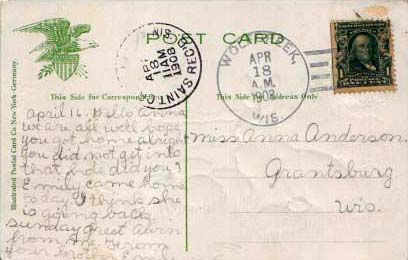 POST CARD
This Side for Correspondence
This Side is for Address Only
Illustrated Postal Card Co. New York-Germany.
SAINT CROIX
REC'D.
APR
18
11 AM
1908
WIS.
APR
18
A.M.
1908
WIS.
April 16. Hello Anna
we are all well hope
you got home alright
you did not get into
that hole did you?
Emily came home
today I think she
is going back
sunday Greet Alvin
from me. From
your brother Emil
Miss Anna Anderson.
Grantsburg
Wis.